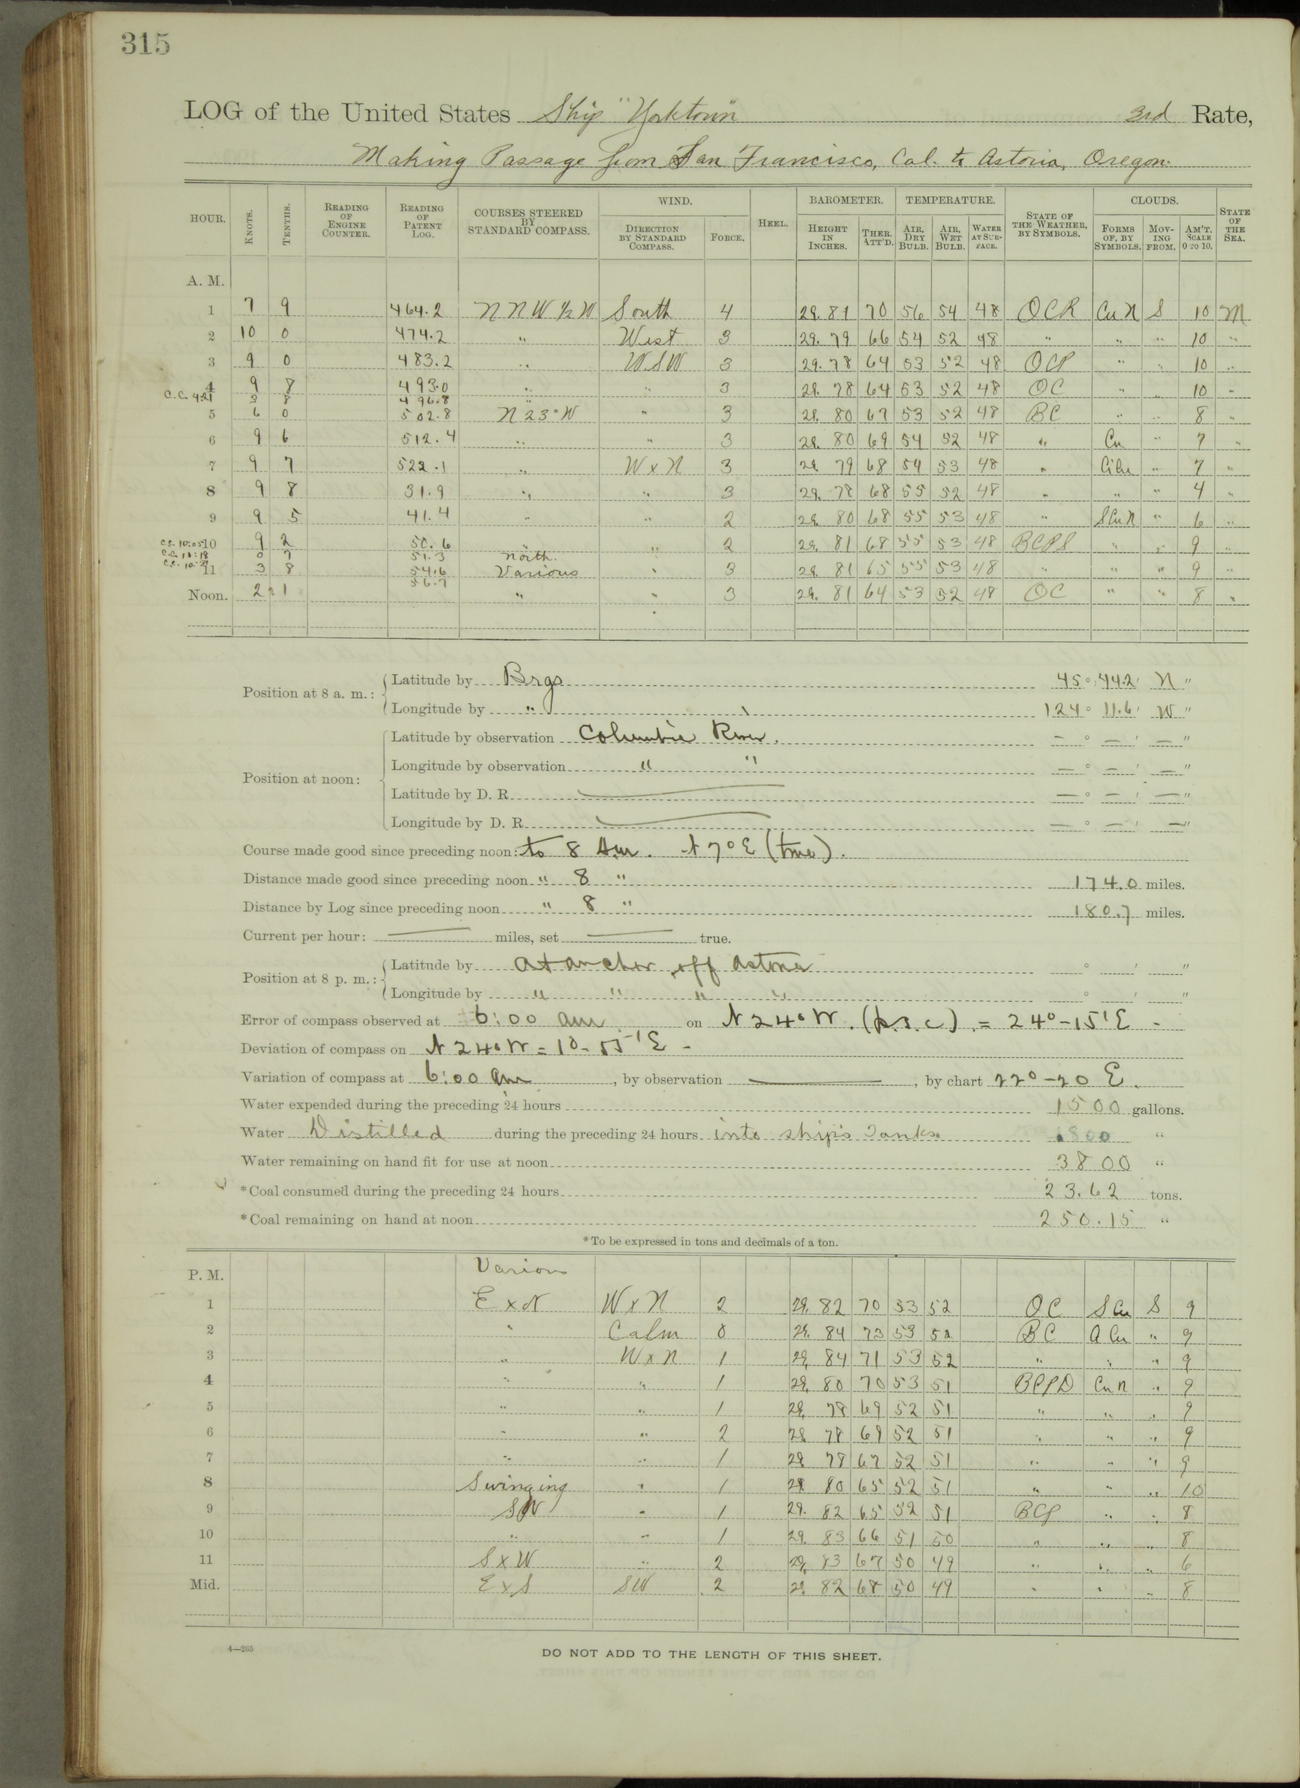 315
LOG of the United States Ship "Yorktown" 3rd Rate,
Making Passage from San Francisco, Cal. to Astoria, Oregon.
HOUR. KNOTS. TENTHS. READING OF ENGINE COUNTER. READING OF PATENT LOG. COURSES STEERED BY STANDARD COMPASS. WIND. DIRECTION BY STANDARD COMPASS. FORCE. HEEL. BAROMETER. HEIGHT IN INCHES. THER. ATT'D. TEMPERATURE. AIR, DRY BULB. AIR, WET BULB. WATER AT SURFACE. STATE OF THE WEATHER, BY SYMBOLS. CLOUDS. FORMS OF, BY SYMBOLS. MOVING FROM. AM'T. SCALE 0 TO 10. STATE OF THE SEA.
A. M.
1 7 9 464.2 NNW½W South 4 29.81 70 56 54 48 OCR CuN S 10 M
2 10 0 474.2 " West 3 29.79 66 54 52 48 " " " 10 "
3 9 0 483.2 " WSW 3 29.78 64 53 52 48 OCP " " 10 "
4 9 8 493.0 " " 3 29.78 64 53 52 48 OC " " 10 "
C.C. 4:21 3 8 496.8 "
5 6 0 502.8 N23°W " 3 29.80 67 53 52 48 BC " " 8 "
6 9 6 512.4 " " 3 29.80 69 54 52 48 " Cu " 7 "
7 9 7 522.1 " WxN 3 29.79 68 54 53 48 " CiCu " 7 "
8 9 8 31.9 " " 3 29.78 68 55 52 48 " " " 4 "
9 9 5 41.4 " " 2 29.80 68 55 53 48 " SCuN " 6 "
C.C. 10:05 10 9 2 50.6 " " 2 29.81 68 55 53 48 BCPS " " 9 "
C.C. 10:18 0 7 51.3 North
11 3 8 54.6 Various " 3 29.81 65 55 53 48 " " " 9 "
56.7
Noon. 2 1 " " 3 29.81 64 53 52 48 OC " " 8 "
Position at 8 a. m.: Latitude by Brgs 45° 44.2' N "
Longitude by " 124° 11.6' W "
Position at noon: Latitude by observation Columbia River. — ° — ' — "
Longitude by observation " " — ° — ' — "
Latitude by D. R. — ° — ' — "
Longitude by D. R. — ° — ' — "
Course made good since preceding noon: to 8 Am. N7°E (true).
Distance made good since preceding noon " 8 " 174.0 miles.
Distance by Log since preceding noon " 8 " 180.7 miles.
Current per hour: — miles, set — true.
Position at 8 p. m.: Latitude by At anchor off Astoria ° ' "
Longitude by " " " " ° ' "
Error of compass observed at 6:00 am on N24°W. (p.s.c.) = 24°-15'E -
Deviation of compass on N24°W = 1°-55'E -
Variation of compass at 6:00 am, by observation —, by chart 22°-20 E.
Water expended during the preceding 24 hours 1500 gallons.
Water Distilled during the preceding 24 hours into ship's Tanks. 800 "
Water remaining on hand fit for use at noon 3800 "
*Coal consumed during the preceding 24 hours 23.62 tons.
*Coal remaining on hand at noon 250.15 "
*To be expressed in tons and decimals of a ton.
P. M. Various
1 ExN WxN 2 29.82 70 53 52 OC SCu S 9
2 " Calm 0 29.84 73 53 52 BC ACu " 9
3 " WxN 1 29.84 71 53 52 " " " 9
4 " " 1 29.80 70 53 51 BCPD CuN " 9
5 " " 1 29.78 69 52 51 " " " 9
6 " " 2 29.78 69 52 51 " " " 9
7 " " 1 29.78 67 52 51 " " " 9
8 Swinging " 1 29.80 65 52 51 " " " 10
9 SW " 1 29.82 65 52 51 BCP " " 8
10 " " 1 29.83 66 51 50 " " " 8
11 SxW " 2 29.83 67 50 49 " " " 6
Mid. ExS SW 2 29.82 68 50 49 " " " 8
4—265
DO NOT ADD TO THE LENGTH OF THIS SHEET.